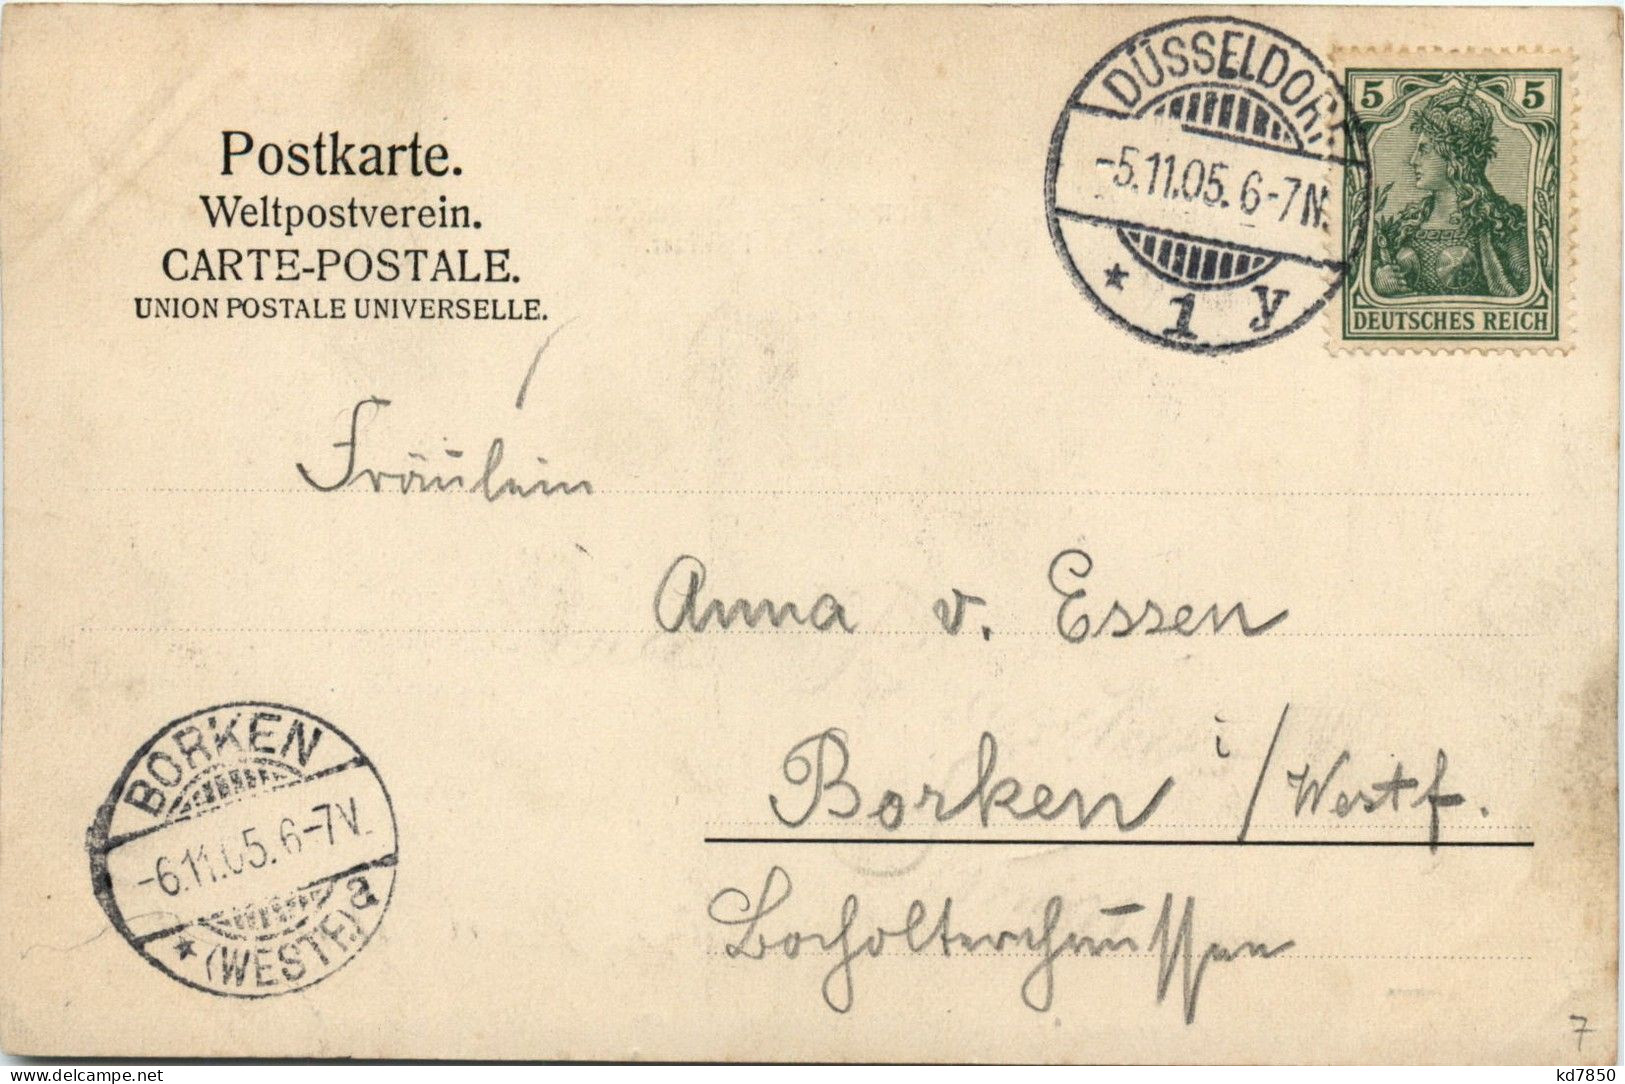 Postkarte.
Weltpostverein.
CARTE-POSTALE.
UNION POSTALE UNIVERSELLE.
DÜSSELDORF
-5.11.05. 6-7N.
* 1 y
5 5
DEUTSCHES REICH
Fräulein
Anna v. Essen
Borken i/Westf.
Bocholterchaussen
BORKEN
-6.11.05. 6-7V.
* (WESTF.) a
7
kd7850